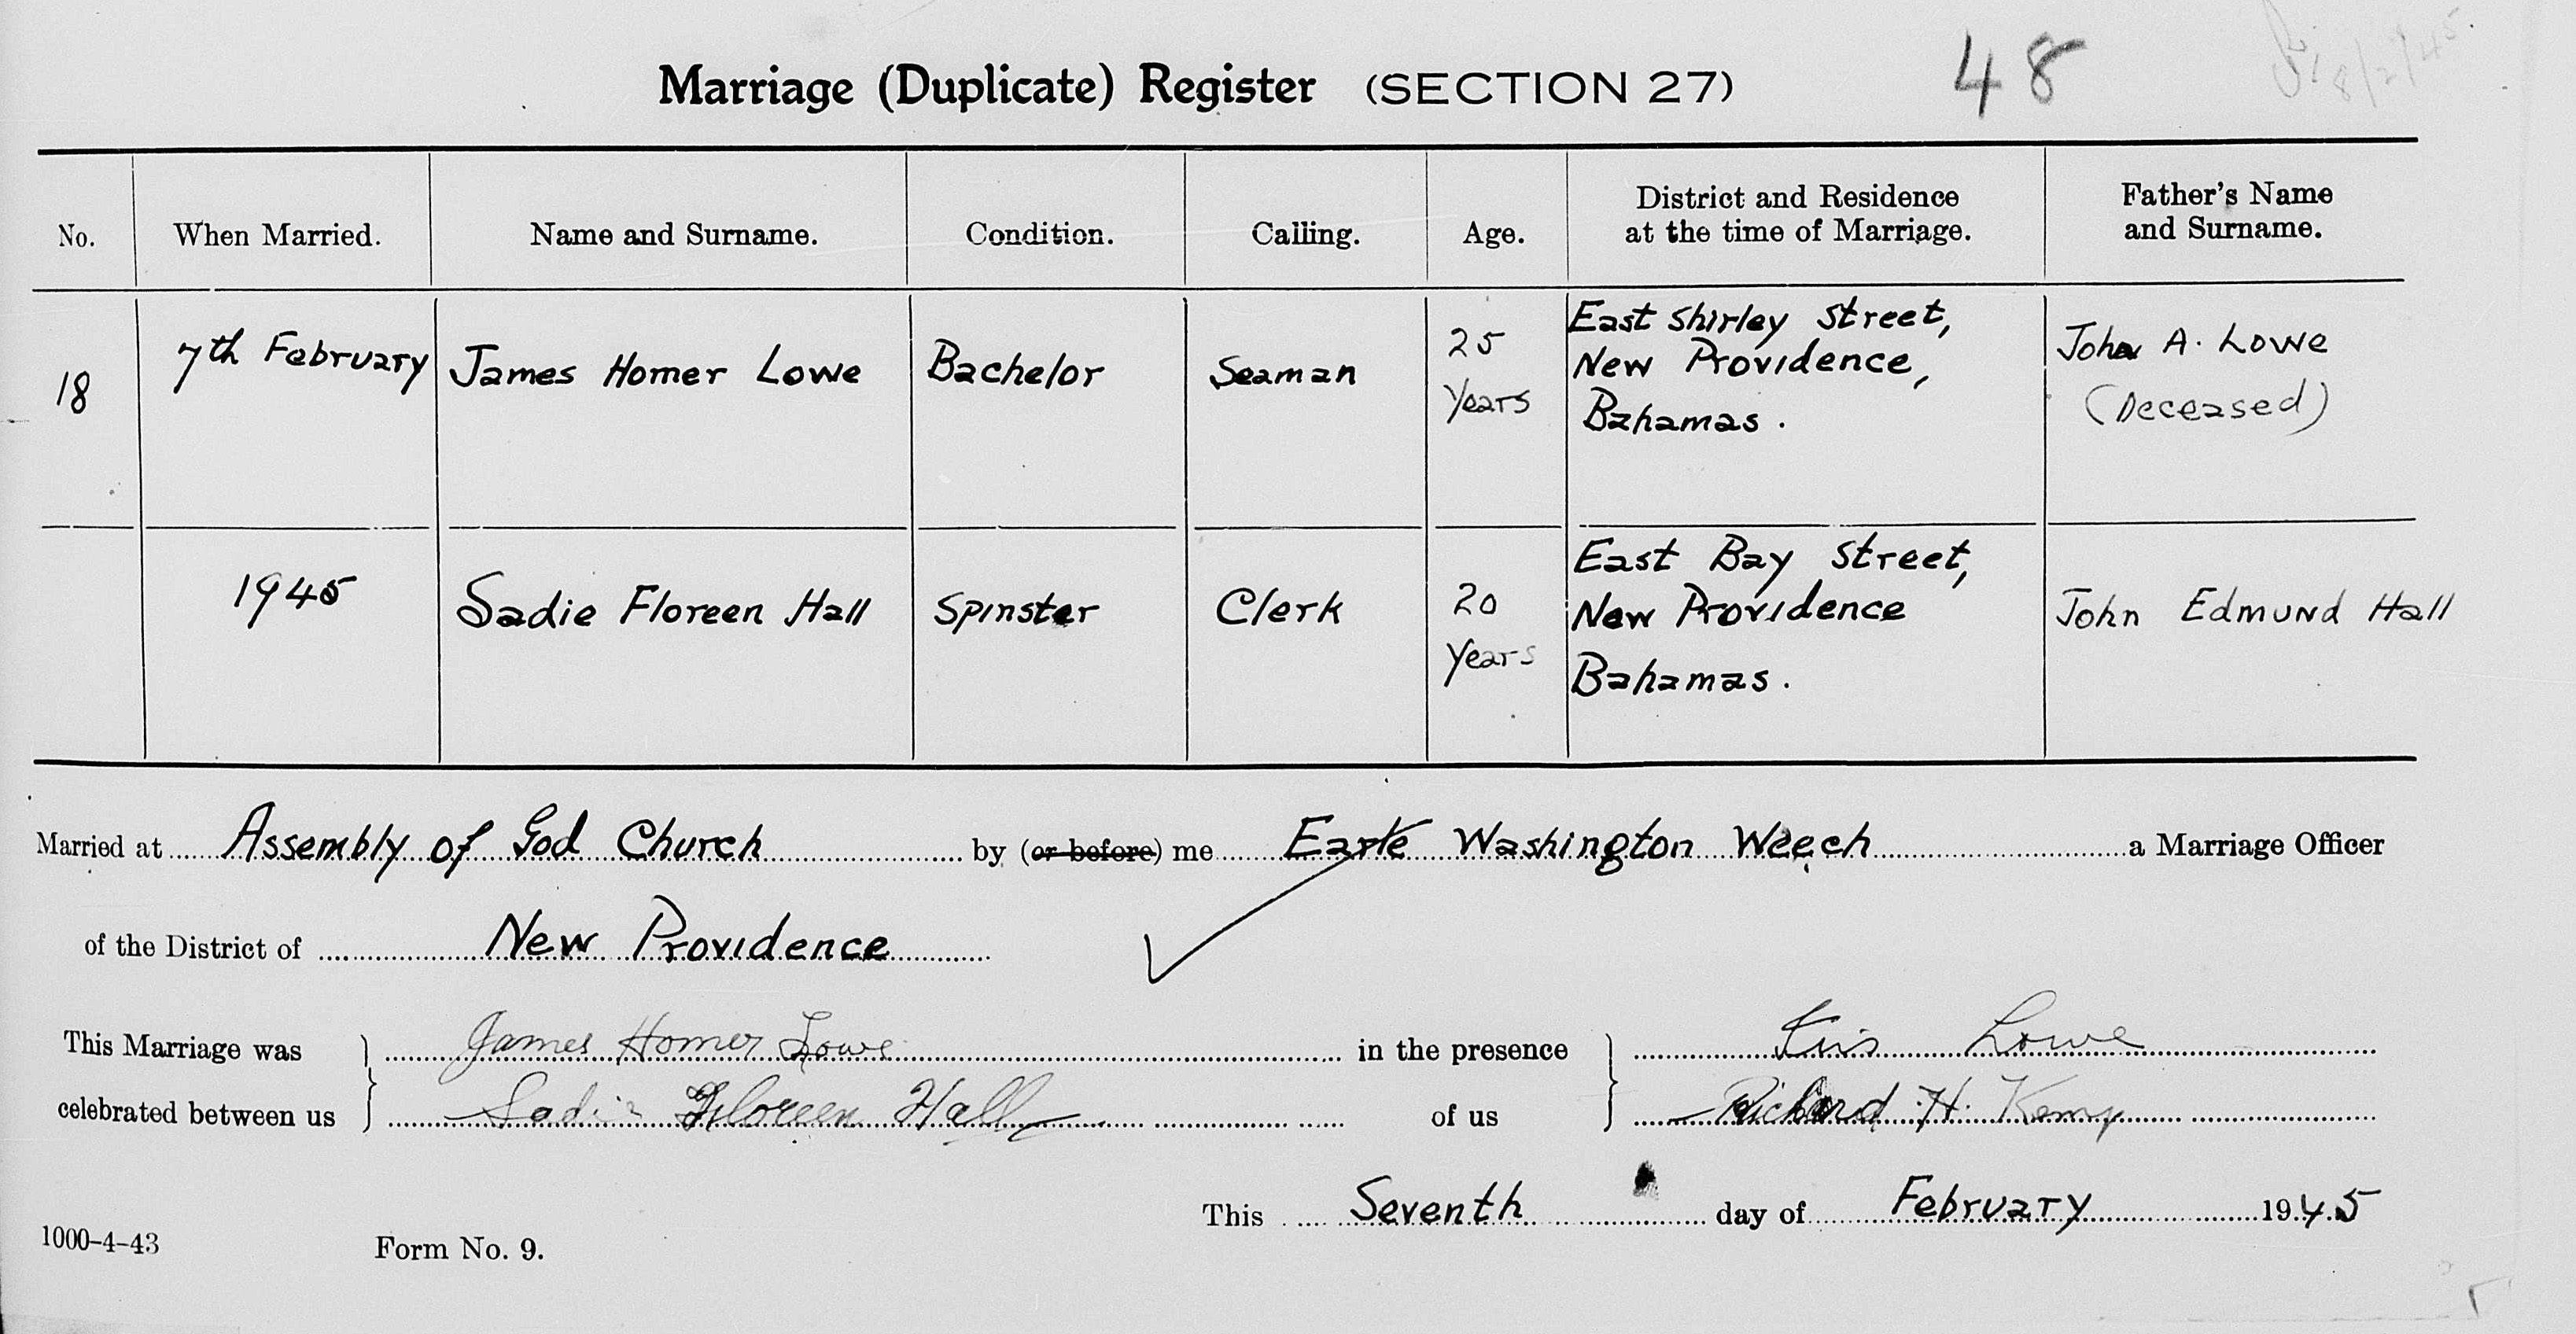 Marriage (Duplicate) Register (SECTION 27) 48
8/2/45
No. When Married. Name and Surname. Condition. Calling. Age. District and Residence at the time of Marriage. Father's Name and Surname.
18 7th February James Homer Lowe Bachelor Seaman 25 Years East Shirley Street, New Providence, Bahamas. John A. Lowe (Deceased)
1945 Sadie Floreen Hall Spinster Clerk 20 Years East Bay Street, New Providence Bahamas. John Edmund Hall
Married at Assembly of God Church by (or before) me Earle Washington Weech a Marriage Officer
of the District of New Providence
This Marriage was James Homer Lowe in the presence Lowe
celebrated between us Sadie Floreen Hall of us Richard H. Kemp
This Seventh day of February 1945
1000-4-43 Form No. 9.